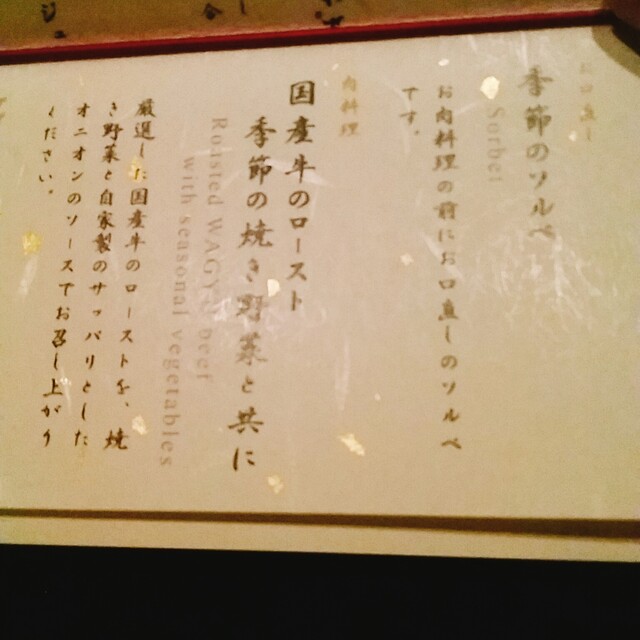 お口直し
季節のソルベ
Sorbet
お肉料理の前にお口直しのソルベ
です。
肉料理
国産牛のロースト
季節の焼き野菜と共に
Roasted WAGYU beef
with seasonal vegetables
厳選した国産牛のローストを、焼
き野菜と自家製のサッパリとした
オニオンのソースでお召し上がり
ください。